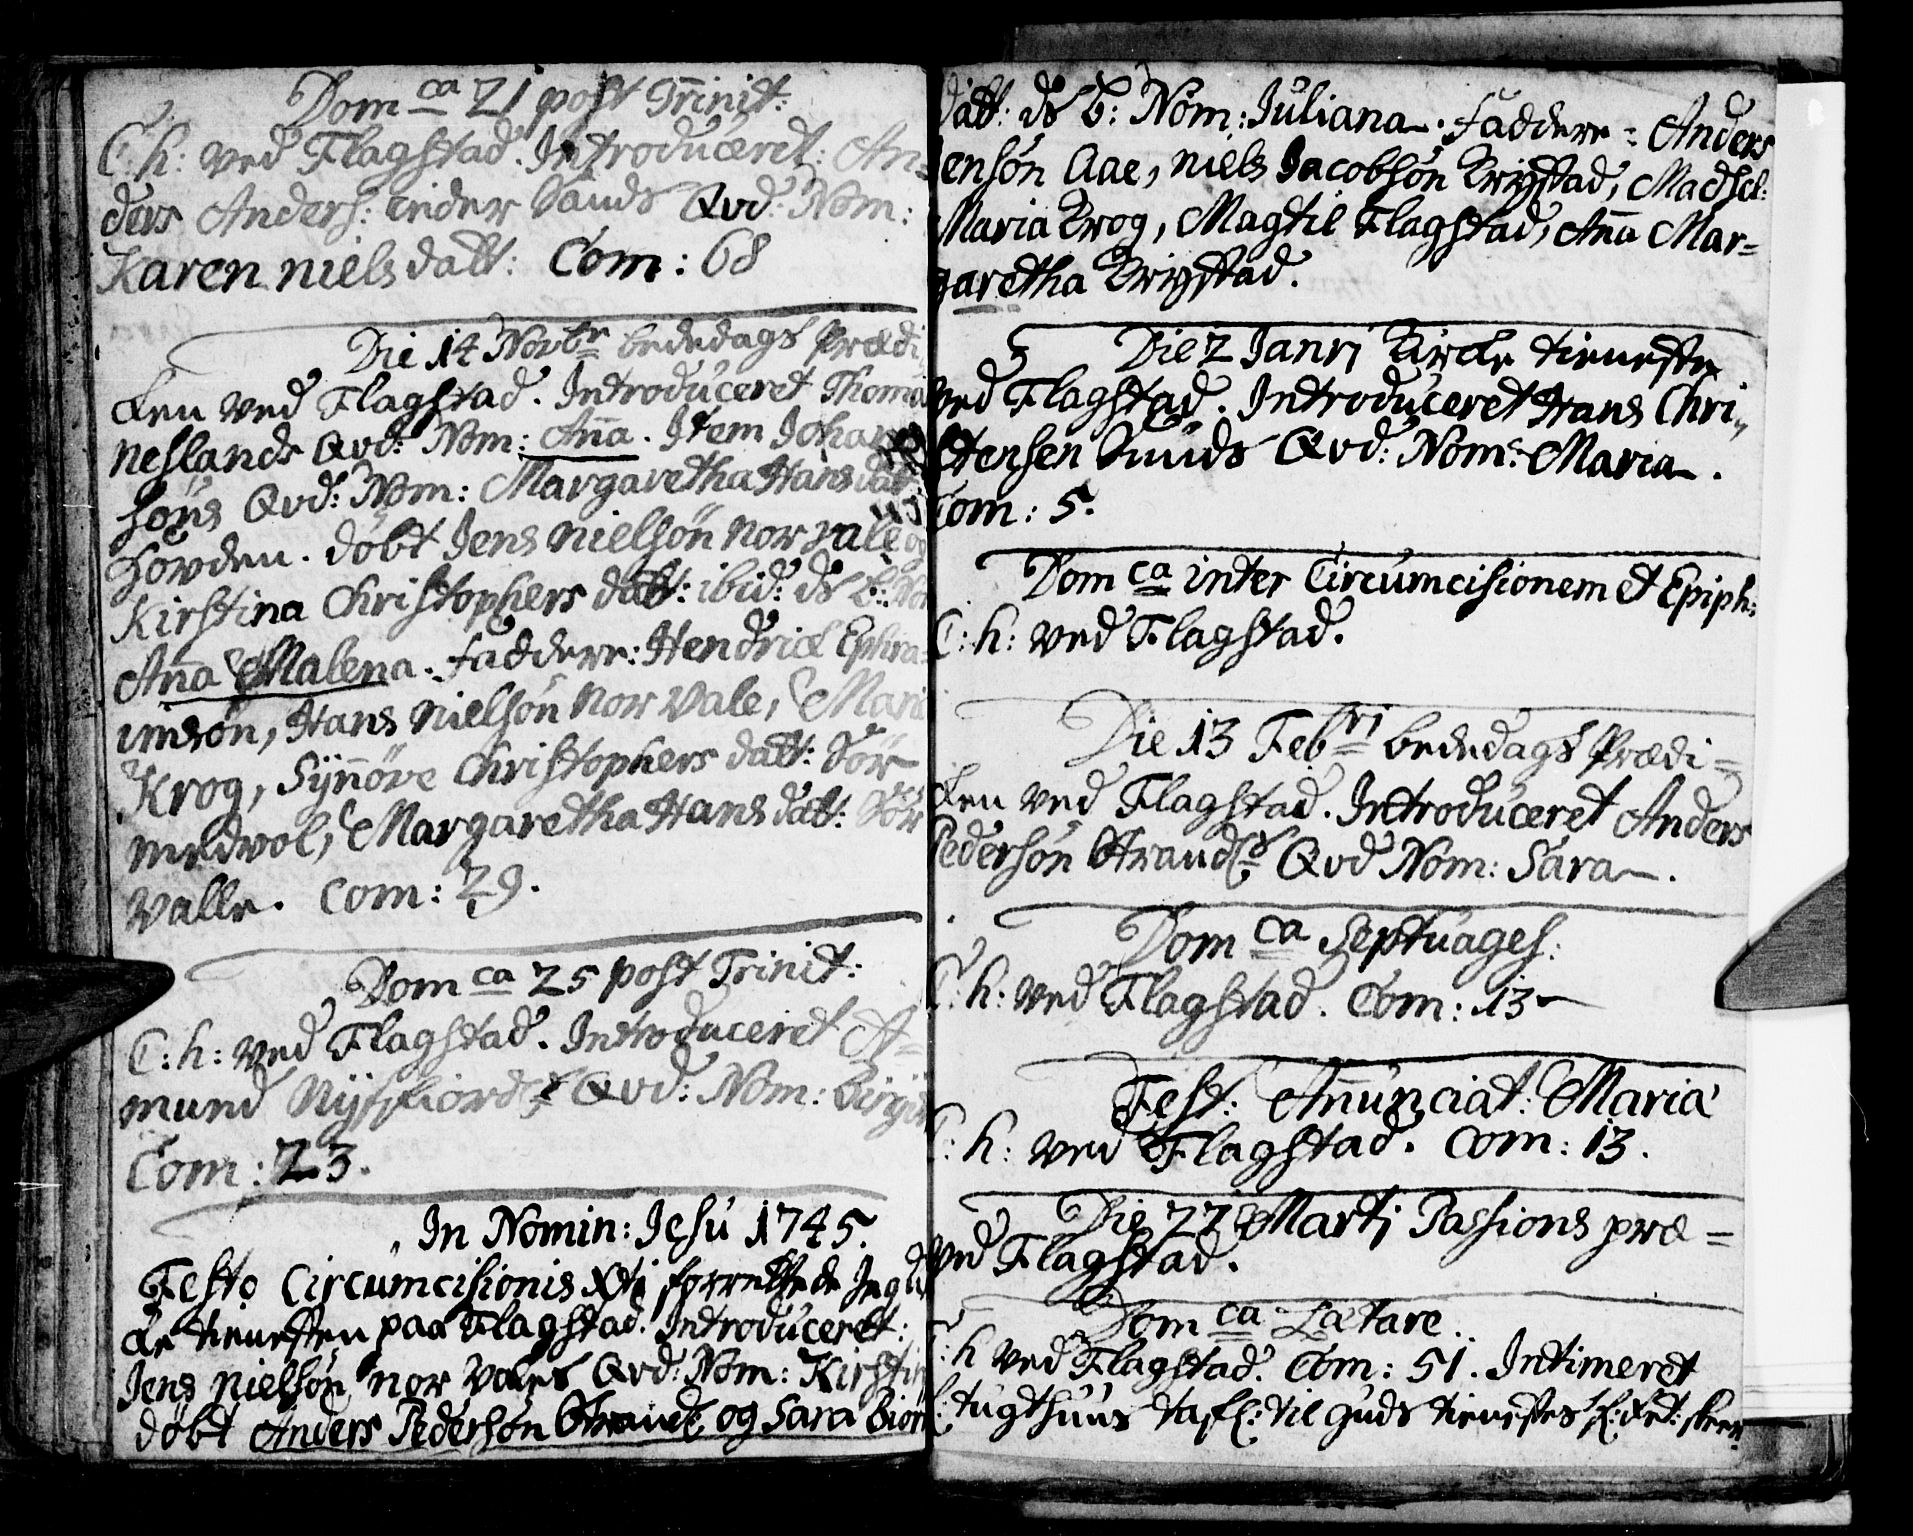 Dom ca 21 post Trinit:
C: h: ved Flagstad. Introduceret: An-
ders Anders: inder Sands Qvd: Nom:
Karen niels datt: Com: 68
Die 14 Novbr bededags Prædi
ken ved Flagstad. Introduceret Thoma
neslands Qvd: Nom: Aña. Item Johan
söns Qvd: Nom: Margaretha Hans datt:
Howden. döbt Jens Nielsön Nor Vale og
Kirstina Christophers datt: ibid: ds b: Nom
Aña Malena. faddere: Hendrick Ephra-
imsön, Hans Nielsön Nor Vale, Maria
Krog, Syñöve Christophers datt: Sör
medvol, Margaretha Hans datt: Sör
Valle. Com: 29.
Dom ca 25 post Trinit:
C: h: ved Flagstad. Introduceret A-
mund Qvd: Nom:
Com: 23.
In Nomin: Jesu 1745.
Festo Circumcisionis Xti forrettede Jeg
ke tienesten paa Flagstad. Introduceret:
Jens Nielsön Nor Vales Qvd: Nom: Kirstin
döbt Anders Pedersön Strands og Sara Biör
datt: ds b: Nom: Juliana. faddere: Anders
Jensön Aae, Niels Jacobsön Krigstad, Madsel:
Maria Krog, Magtil Flagstad, Aña Mar-
garetha Krigstad.
Die 2 Janrj Kircke tieneste
ved Flagstad. Introduceret Hans Chri-
stensen Sunds Qvd: Nom: Maria.
Com: 5.
Dom ca inter Circumcisionem et Epiph:
C: h: ved Flagstad.
Die 13 Febrj bededags Prædi-
ken ved Flagstad. Introduceret Anders
Pedersön Strands Qvd Nom: Sara.
Dom ca Septuages:
C: h: ved Flagstad. Com: 13
Fest: Añunciat: Maria
C: h: ved Flagstad. Com: 13.
Die 22 Martj Passions præ-
ved Flagstad.
Dom ca Lætare.
C: h ved Flagstad. Com: 51. Intimeret
tugthuus til guds tienestes